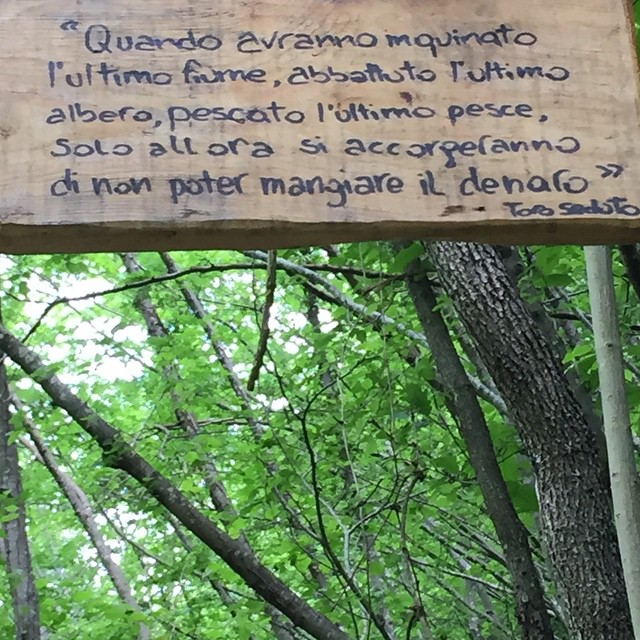 “Quando avranno inquinato
l'ultimo fiume, abbattuto l'ultimo
albero, pescato l'ultimo pesce,
solo allora si accorgeranno
di non poter mangiare il denaro”
Toro seduto